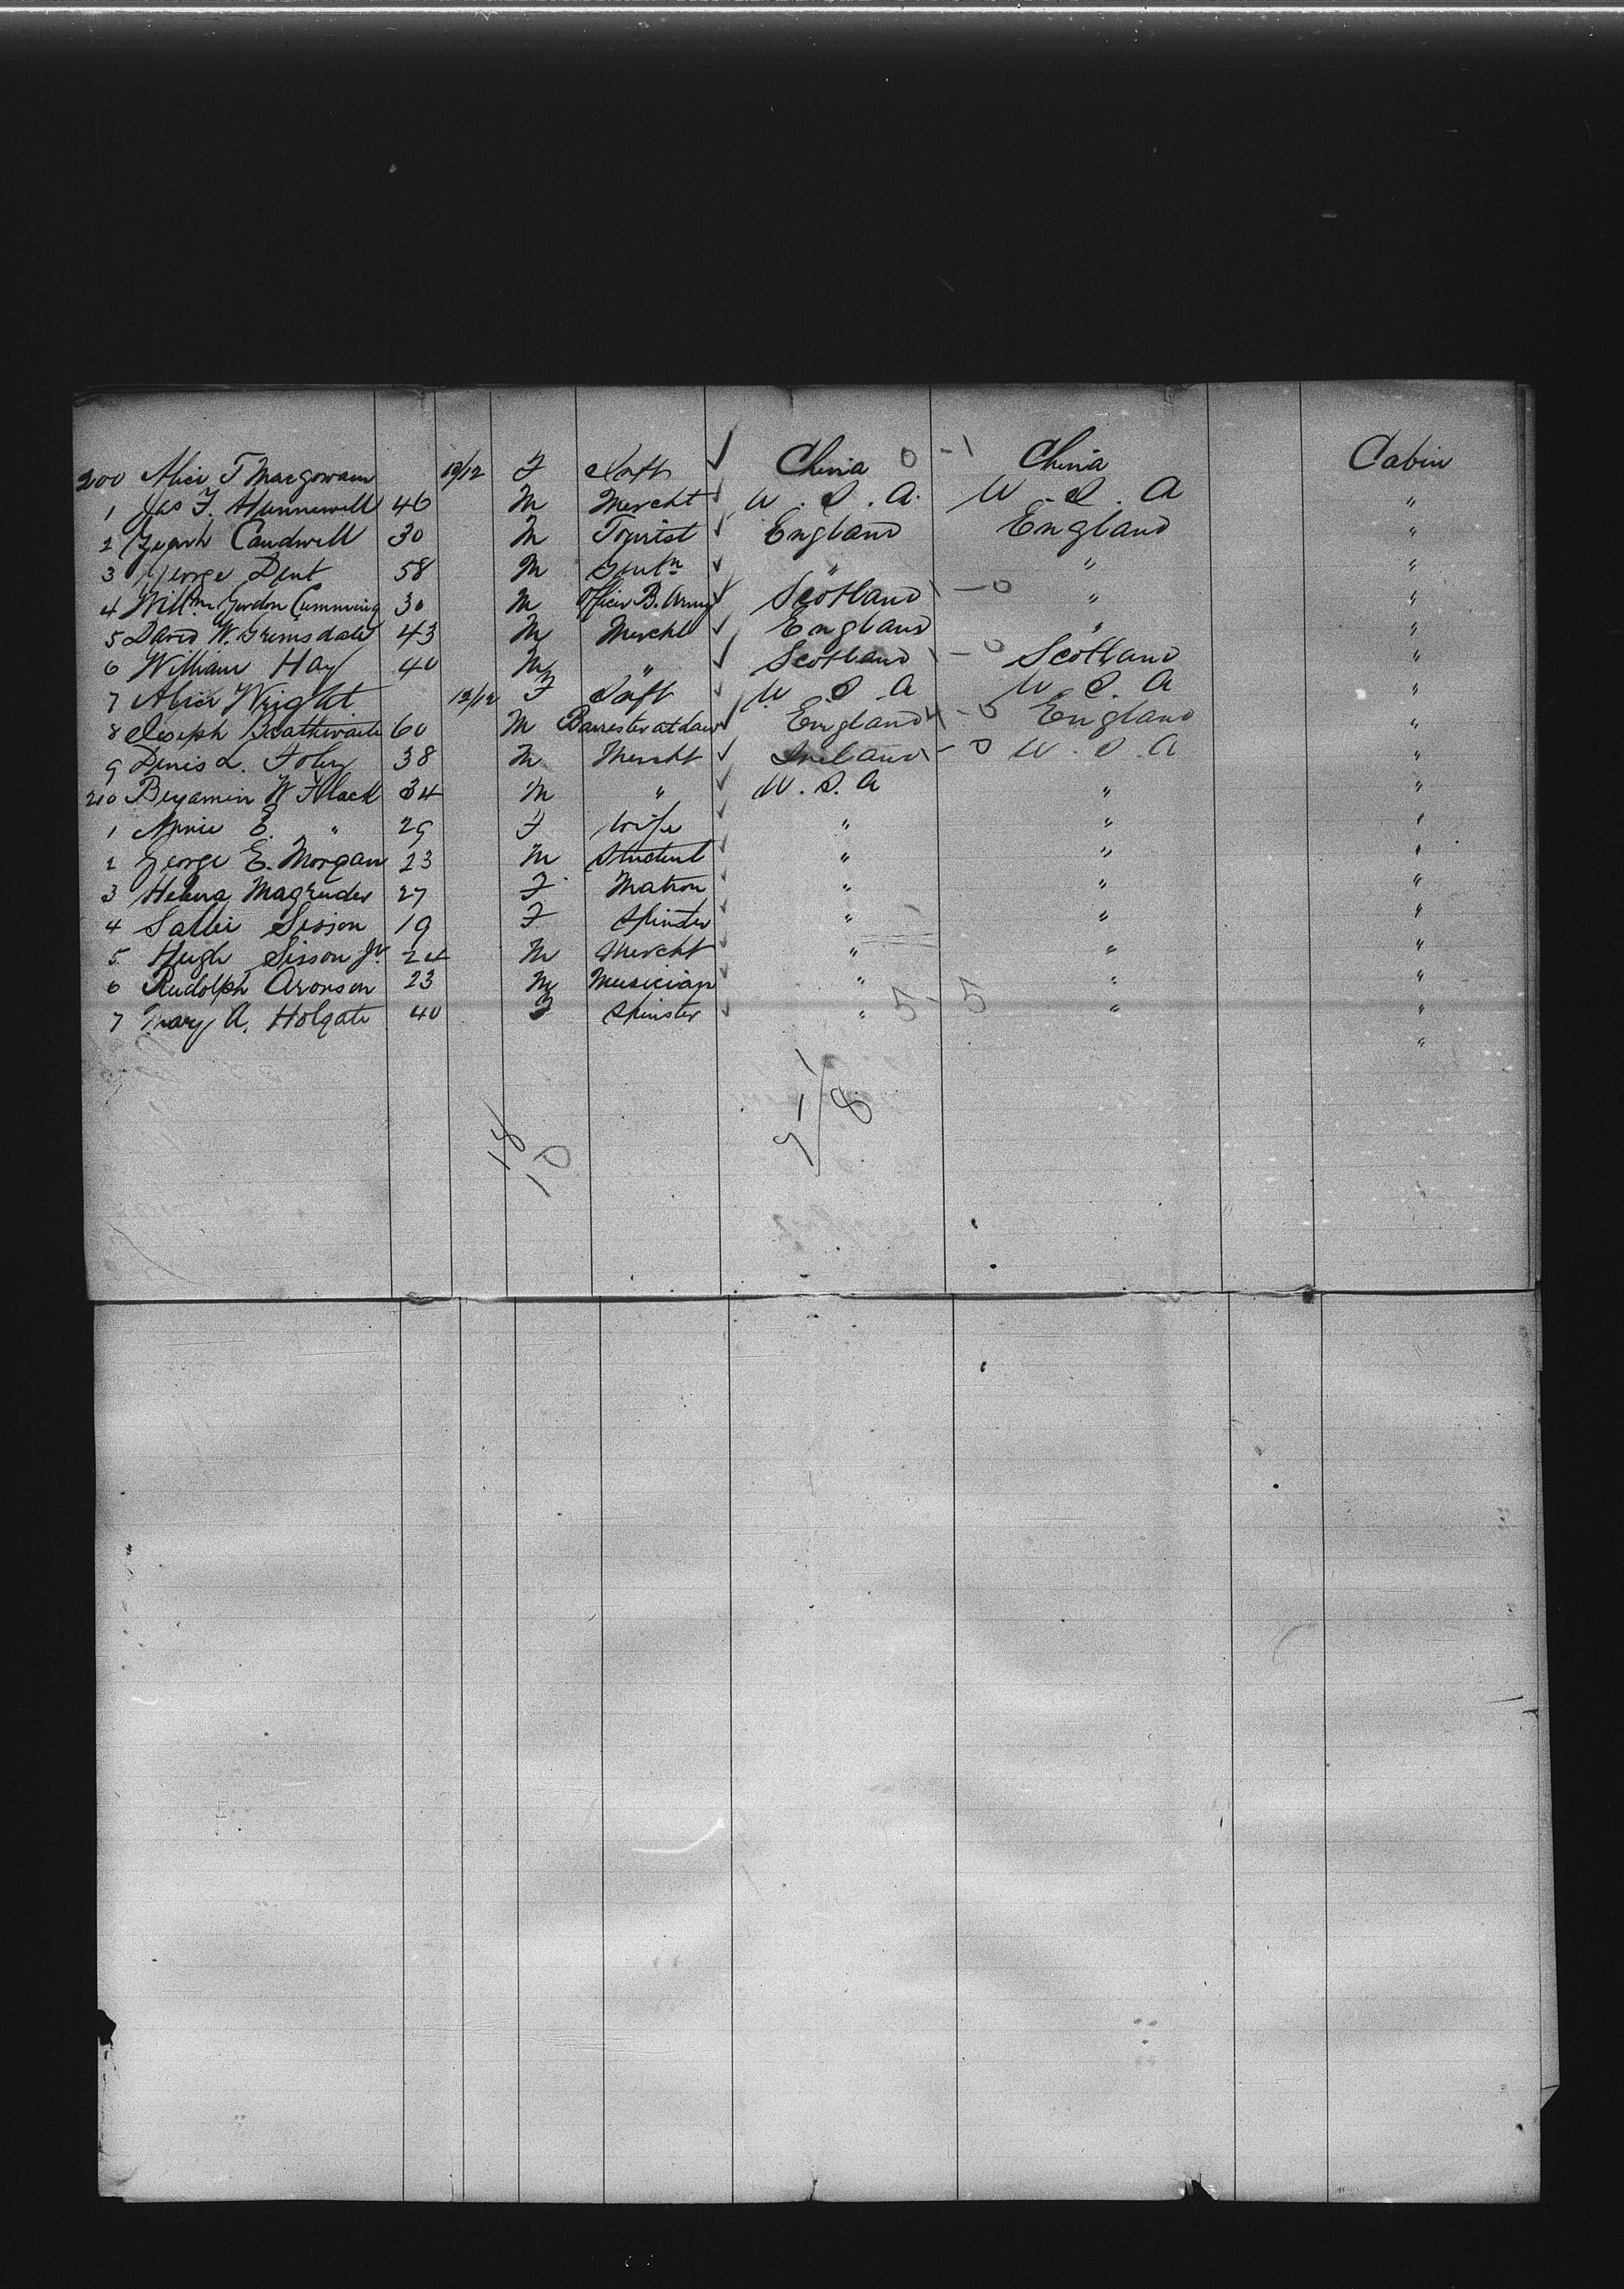 200 Alice T Macgowan 10/12 F Inft ✓ China 0 - 1 China Cabin
1 Jas F. Hunnewell 46 M Mercht ✓ U. S. A. U. S. A "
2 Caudwell 30 M Tourist ✓ England England "
3 George Dent 58 M Gentn ✓ " " "
4 Willm Gordon Cumming 30 M Officer B. Army ✓ Scotland 1 - 0 " "
5 David W. Grimsdale 43 M Mercht ✓ England " "
6 William Hay 40 M " ✓ Scotland 1 - 0 Scotland "
7 Alice Wright 10/12 F Inft ✓ U S A U. S. A "
8 Joseph Braithwaite 60 M Barrester at Law ✓ England 4 - 5 England "
9 Denis L. Foley 38 M Mercht ✓ Ireland 1 - 0 U. S. A "
210 Benjamin W Flack 34 M " ✓ U. S. A " "
1 Annie E. " 29 F Wife ✓ " " "
2 George E. Morgan 23 M Student ✓ " " "
3 Helena Magruder 27 F Matron ✓ " " "
4 Sallie Sisson 19 F Spinster ✓ " " "
5 Hugh Sisson Jr. 24 M Mercht ✓ " " "
6 Rudolph Aronson 23 M Musician ✓ " " "
7 Mary A. Holgate 40 F Spinster ✓ " 5 - 5 " "
"
18
10
8